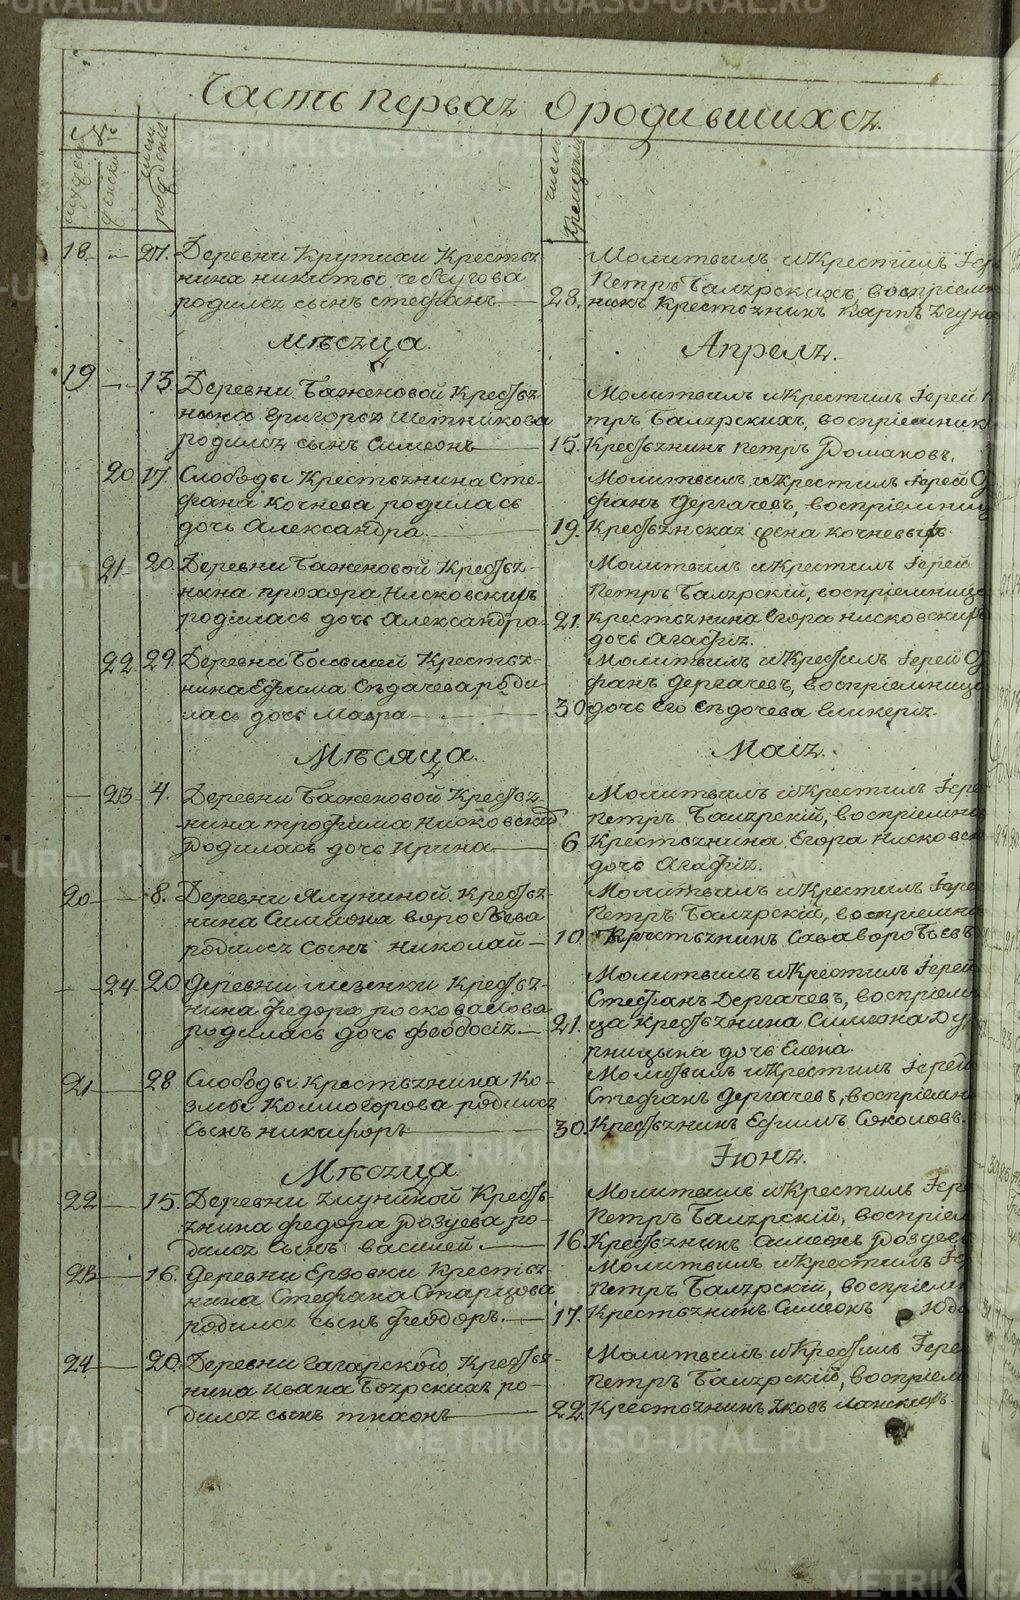 Часть первая о родившихся.
№
мужеска
женска
число рождения
число крещения
18. — 27. Деревни Крутихи Крестья-
нина никиты чебугова
родился сынъ стефанъ
Молитвилъ и Крестилъ Іер
Петръ Балярскихъ, восприем
28. никъ Крестьянинъ Карпъ
Мѣсяца Апреля.
19. — 13. Деревни Баженовой Крестья
нина Григорья Щетникова
родился сынъ Симеонъ
Молитвилъ и Крестилъ Іерей П
тръ Балярскихъ, восприемник
15. Крестьянинъ Петръ Романовъ.
20. 17. Слободы Крестьянина Сте-
фана Кочнева родилась
дочь Александра.
Молитвилъ и крестилъ Іерей С
фанъ Дергачевъ, восприемниц
19. Крестьянская жена кочневыхъ.
21 20. Деревни Баженовой Крестья-
нина прохора Нисковскихъ
родилась дочь Александра.
Молитвилъ и Крестилъ Іерей
Петръ Балярскій, восприемница
21. крестьянина Егора нисковскихъ
дочь Агафія.
22. 29. Деревни Большей Крестья-
нина Ефима Сѣдачева роди-
лась дочь Мавра
Молитвилъ и Крестилъ Іерей С
фанъ Дергачевъ, восприемница
30 дочь его Сѣдочева Гликерія.
Мѣсяца Маія.
— 23 4. Деревни Баженовой Крестья-
нина трофима Нисковскихъ
родилась дочь Ирина
Молитвилъ и Крестилъ Іере
петръ Балярскій, восприемни
6. Крестьянина Егора Нисковск
дочь Агафія.
20 — 8. Деревни Ялуниной Крестья-
нина Симиона воробьева
родился сынъ николай
Молитвилъ и Крестилъ Іере
Петръ Балярскій, восприемни
10. Крестьянинъ Сава воробьевъ
— 24 20 Деревни мезенки Крестья-
нина федора росковалова
родилась дочь феодосія.
Молитвилъ и Крестилъ Іерей
Стефанъ Дергачевъ, восприем
21. ца Крестьянина Симиона Ду
рницына дочь Елена.
21 — 28 Слободы крестьянина Ко-
змы Колмогорова родился
сынъ никифоръ
Молитвилъ и Крестилъ Іерей
Стефанъ Дергачевъ, восприемни
30. Крестьянинъ Ефимъ Соколовъ.
Мѣсяца Іюня.
22 — 15. Деревни ялуниной Кресть-
янина федора Роздуева ро-
дился сынъ василей.
Молитвилъ и Крестилъ Іере
Петръ Балярскій, восприем
16. Крестьянинъ Симеонъ Роздуев
23 — 16. Деревни Ерзовки Крестья-
нина Стефана Старцова
родился сынъ феодоръ.
Молитвилъ и Крестилъ Іе
Петръ Балярскій, восприем
17. Крестьянинъ Симеонъ
24. — 20. Деревни Гагарского Крестья-
нина Ивана Боярскихъ ро-
дился сынъ тихонъ
Молитвилъ и Крестилъ Іере
Петръ Балярскій, восприем
22. Крестьянинъ яковъ Ланскихъ.
METRIKI.GASO-URAL.RU